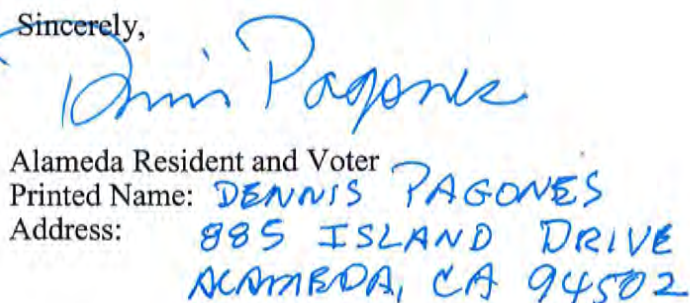 Sincerely,
Dennis Pagones
Alameda Resident and Voter
Printed Name: DENNIS PAGONES
Address: 885 ISLAND DRIVE
ALAMEDA, CA 94502